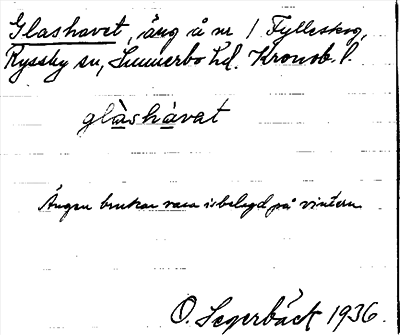 Glashavet, äng å nr 1 Fylleskog,
Ryssby sn, Sunnerbo hd. Kronob. l.
glàshàvat
Ängen brukar vara isbelagd på vintern
O. Segerbäck 1936.